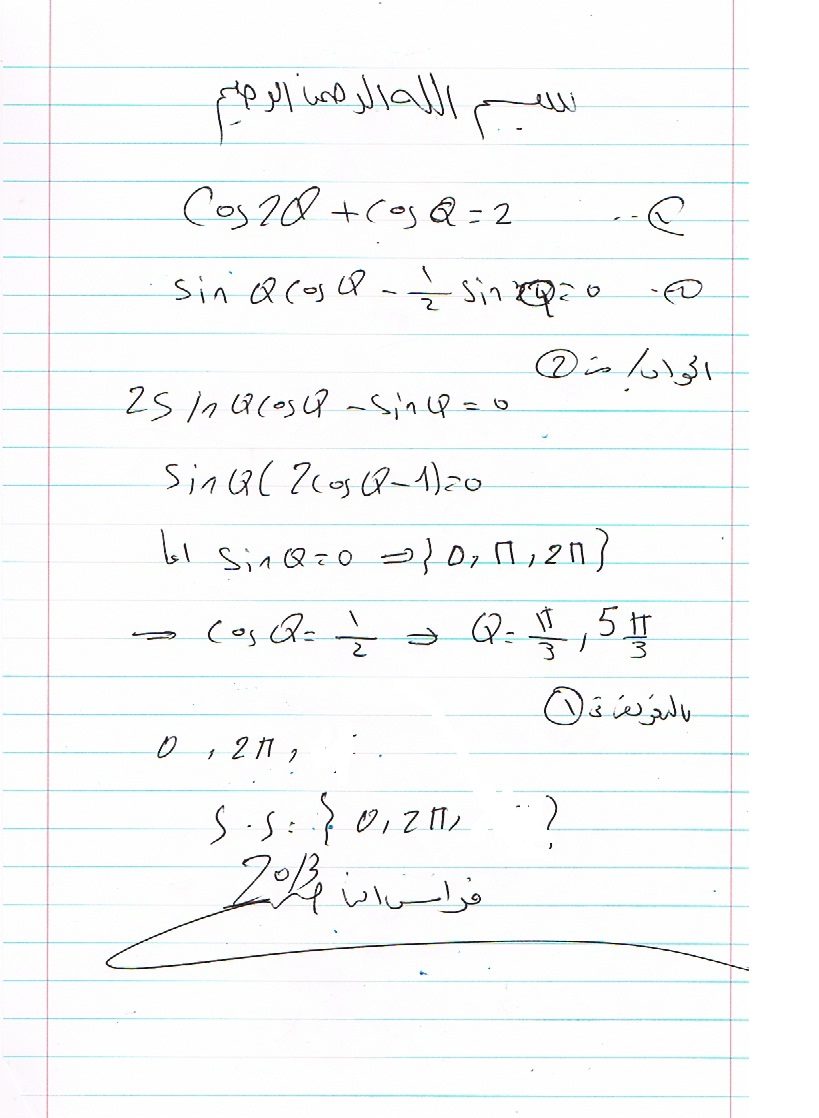 بسم الله الرحمن الرحيم
Cos2Q + cosQ = 2 ... ①
sin Q cos Q - 1/2 sin Q = 0 .. ②
الجواب / من ②
2sin Q cos Q - sin Q = 0
sin Q ( 2cos Q - 1) = 0
اما sin Q = 0 ⇒ { 0, π, 2π }
⇒ cos Q = 1/2 ⇒ Q = π/3 , 5π/3
بالتعويض في ①
0 , 2π ,
S.S = { 0, 2π, .. }
2013